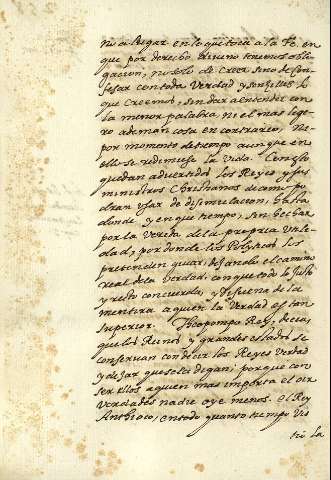 no à lugar en lo que toca a la fe, en
que por derecho Divino tenemos obli
gacion, no solo de creer sino de con
fesar con toda verdad y senzillez lo
que creemos, sin dar a entender con
la menor palabra, ni el mas lige
ro ademan cosa en contrario, ni
por momento de tiempo aunque en
ello se redemiese la vida. Con esto
quedan advertidos los Reyes y sus
ministros Christianos de como po
dran usar de disimulacion, hasta
donde y en que tiempo, sin hechar
por la vereda de la propria utili
dad, por donde los Polyticos los
pretenden guiar, dejando el camino
real de la verdad, con que todo lo justo
y recto concuerda, y disuena de la
mentira a quien la verdad es tan
superior. Theopompo Rey, decia,
que los Reinos y grandes estados se
conservan con decir los Reyes verdad
y dejar que se la digan; porque con
ser ellos a quien mas importa el oir
verdades nadie oye menos. El Rey
Anthioco, en todo quanto tiempo vis
tio la